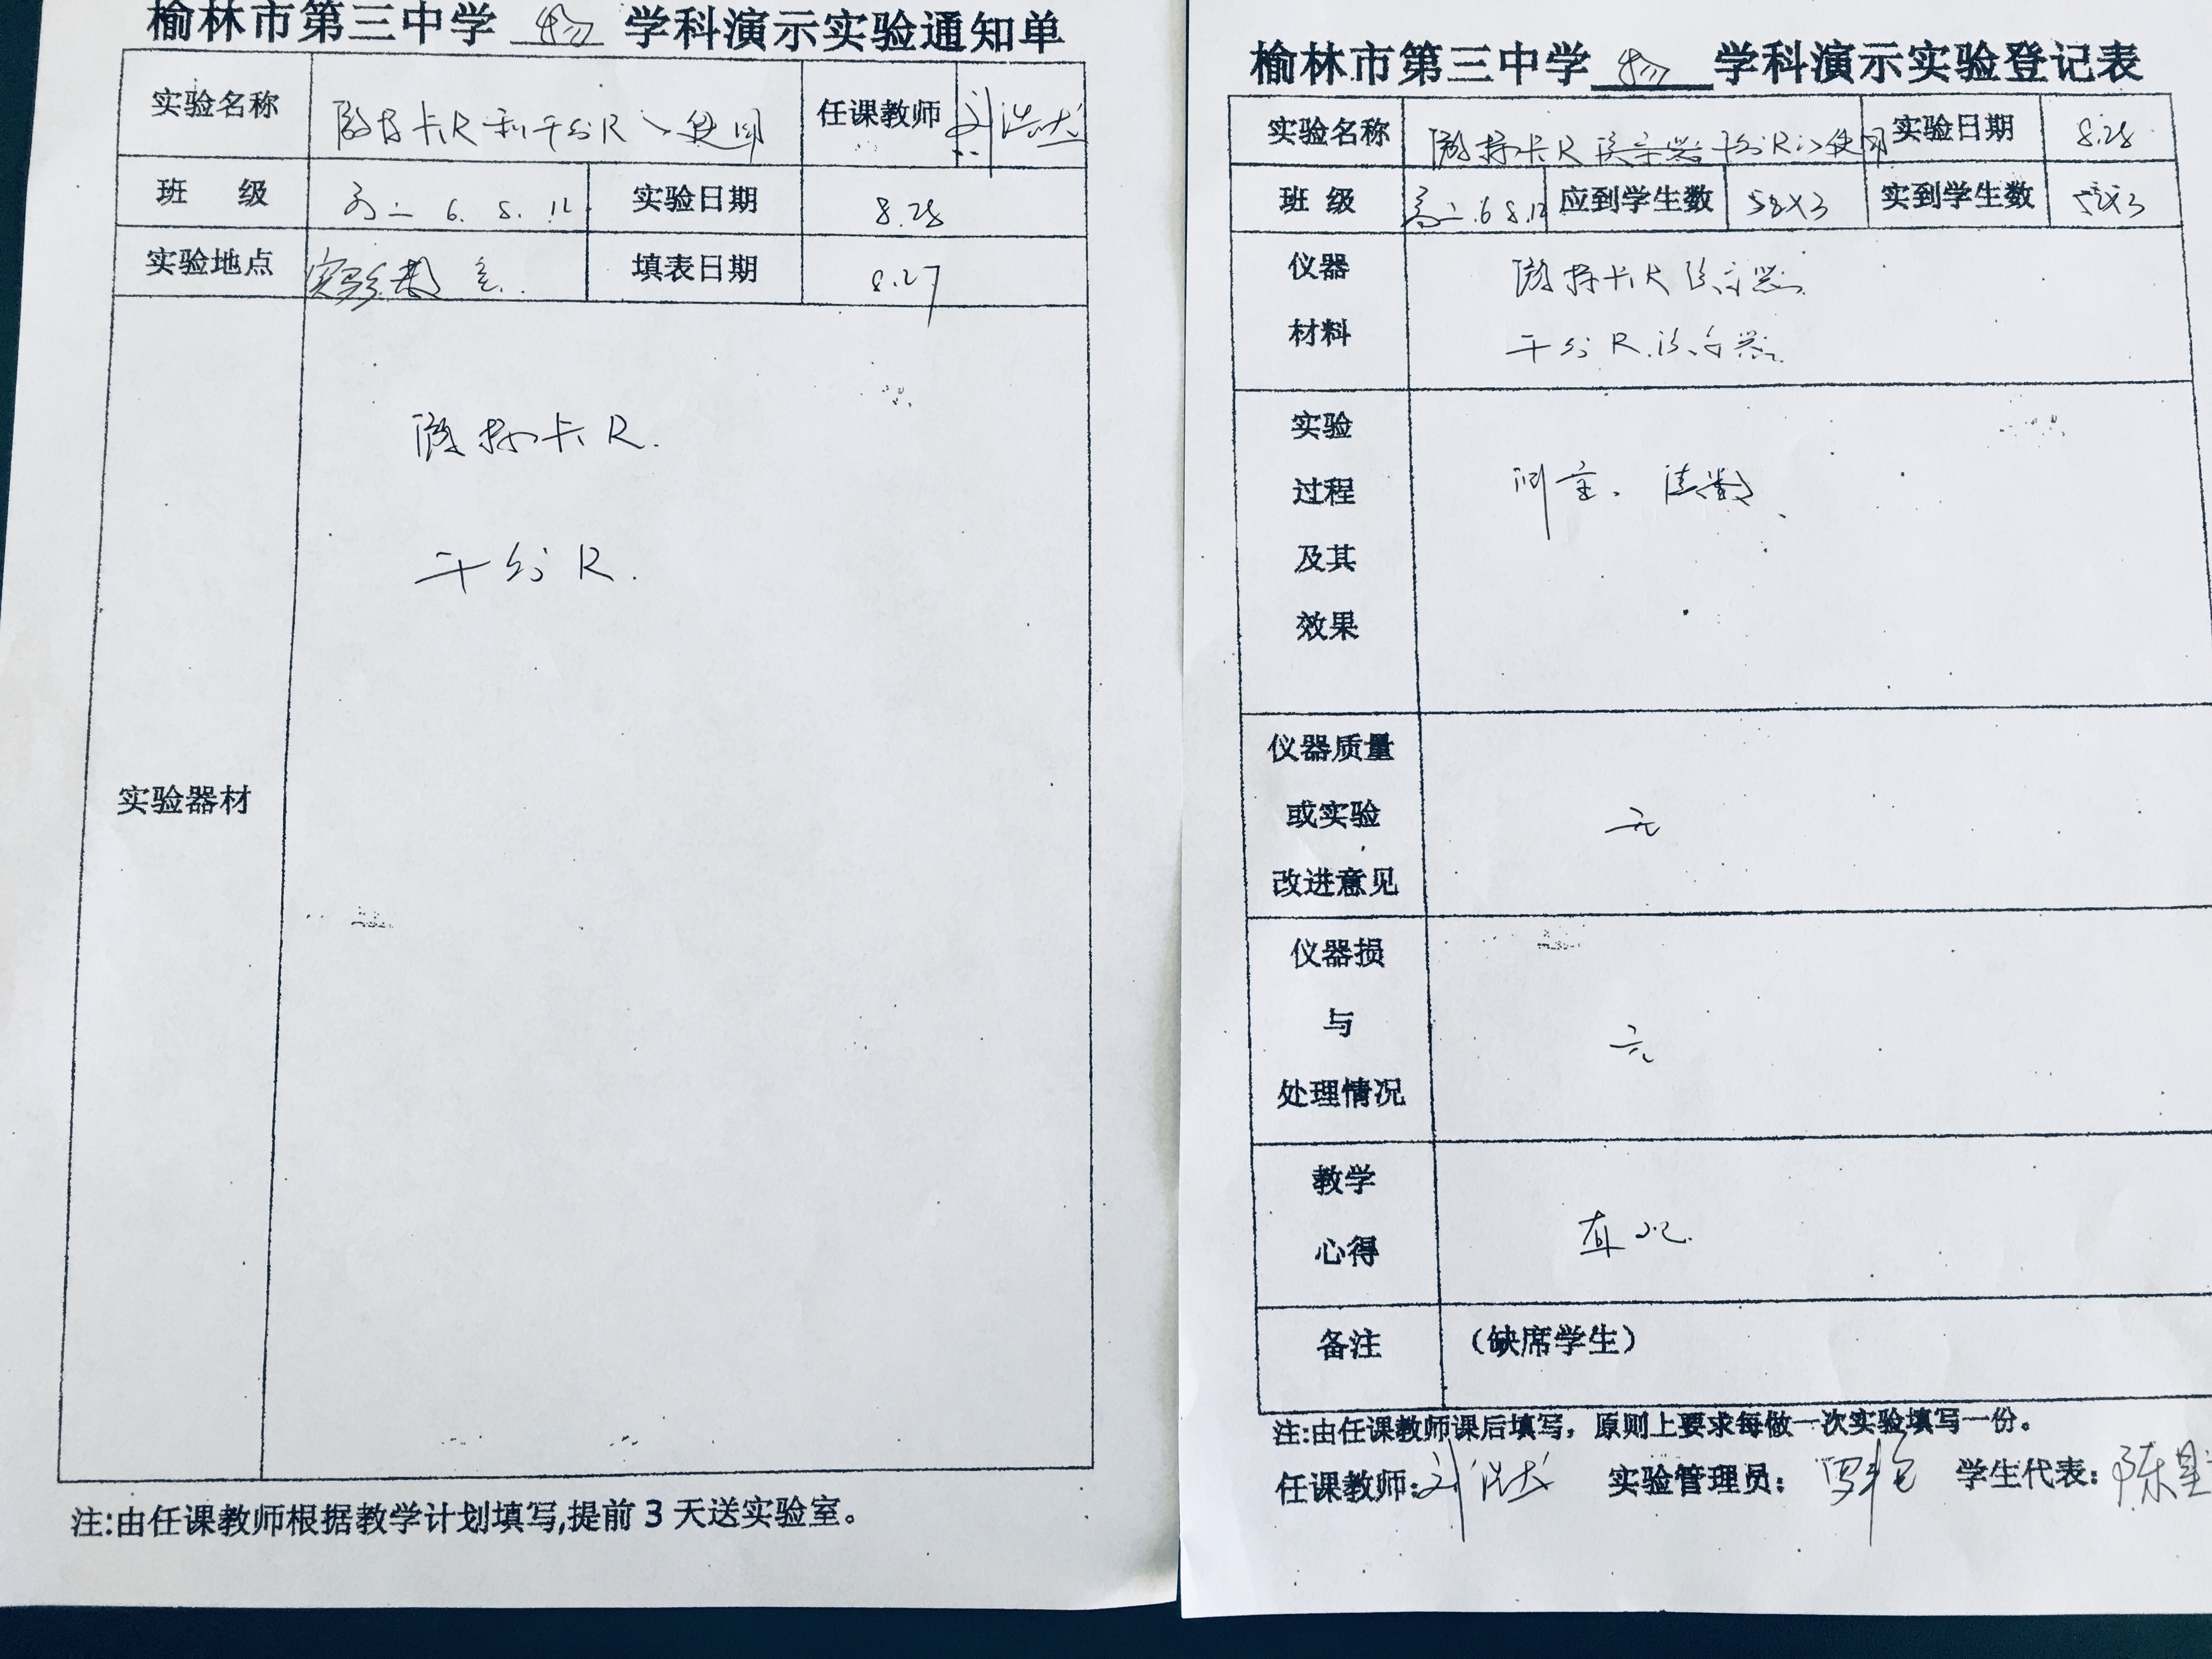 榆林市第三中学 物 学科演示实验通知单
实验名称 游标卡尺和千分尺的使用 任课教师 刘浩龙
班 级 高二 6. 8. 12 实验日期 8.28
实验地点 实验教室 填表日期 8.27
实验器材
游标卡尺.
千分尺.
注:由任课教师根据教学计划填写,提前3天送实验室。
榆林市第三中学 物 学科演示实验登记表
实验名称 游标卡尺 千分尺的使用 实验日期 8.28
班 级 高二.6 8.12 应到学生数 58×3 实到学生数 58×3
仪器
材料
游标卡尺
千分尺
实验
过程
及其
效果
测量. 读数
仪器质量
或实验
改进意见
无
仪器损
与
处理情况
无
教学
心得
直观.
备注 (缺席学生)
注:由任课教师课后填写，原则上要求每做一次实验填写一份。
任课教师: 刘浩龙 实验管理员: 学生代表: 陈